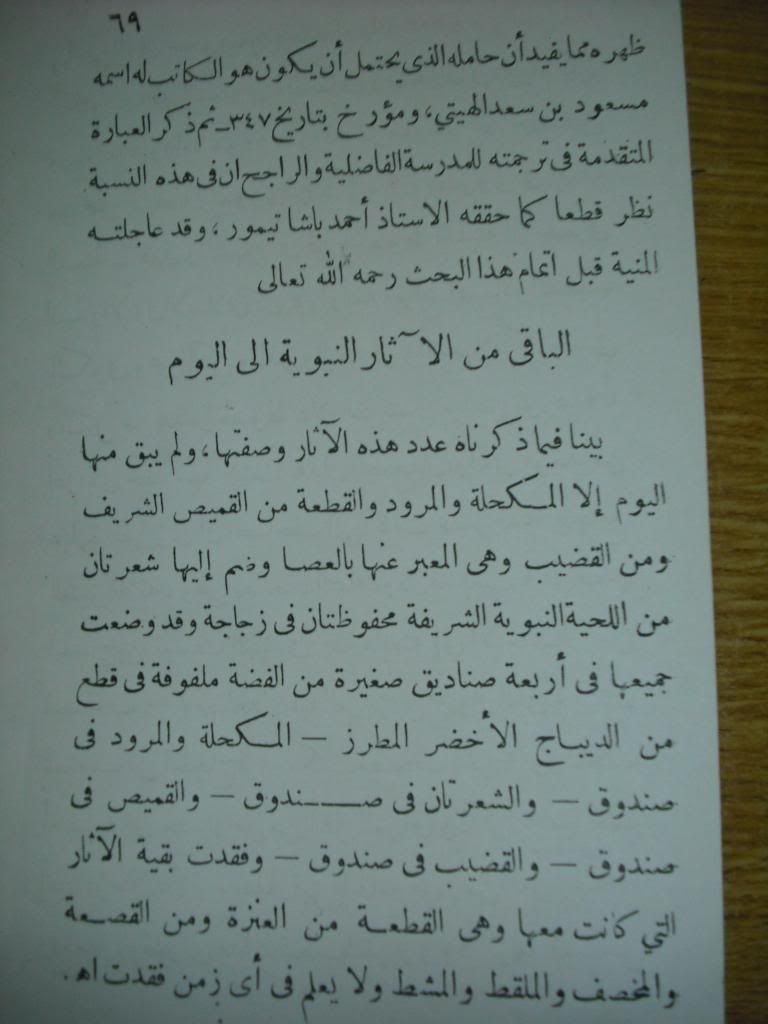 ٦٩
ظهره مما يفيد أن حامله الذى يحتمل أن يكون هو الكاتب له اسمه
مسعود بن سعد الهيتي، ومؤرخ بتاريخ ٣٤٧ـ ثم ذكر العبارة
المتقدمة فى ترجمته للمدرسة الفاضلية والراجح ان فى هذه النسبة
نظر قطعا كما حققه الاستاذ أحمد باشا تيمور، وقد عاجلته
المنية قبل اتمام هذا البحث رحمه الله تعالى
الباقى من الآثار النبوية الى اليوم
بينا فيما ذكرناه عدد هذه الآثار وصفتها، ولم يبق منها
اليوم إلا المكحلة والمرود والقطعة من القميص الشريف
ومن القضيب وهى المعبر عنها بالعصا وضم إليها شعرتان
من اللحية النبوية الشريفة محفوظتان فى زجاجة وقد وضعت
جميعها فى أربعة صناديق صغيرة من الفضة ملفوفة فى قطع
من الديباج الأخضر المطرز — المكحلة والمرود فى
صندوق — والشعرتان فى صندوق — والقميص فى
صندوق — والقضيب فى صندوق — وفقدت بقية الآثار
التي كانت معها وهى القطعة من العنزة ومن القصعة
والمخصف والملقط والمشط ولا يعلم فى أى زمن فقدت اه.